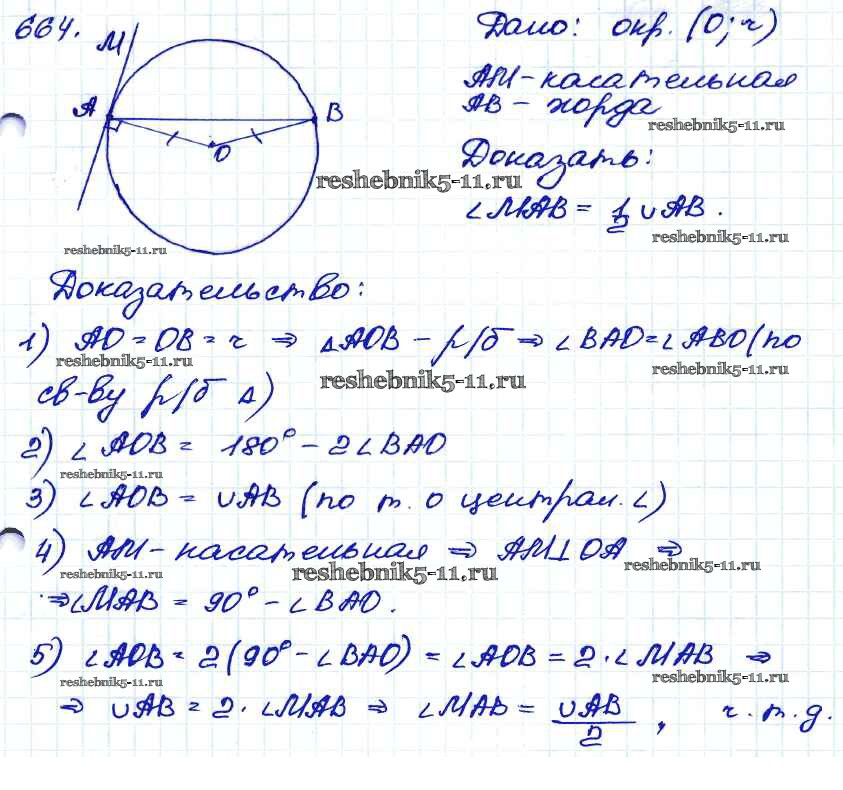 664.
M
A
B
O
Дано: окр. (O; r)
AM - касательная
AB - хорда
reshebnik5-11.ru
Доказать:
reshebnik5-11.ru
∠MAB = 1/2 ∪AB.
reshebnik5-11.ru
reshebnik5-11.ru
Доказательство:
1) AO = OB = r ⇒ △AOB - р/б ⇒ ∠BAO = ∠ABO (по
reshebnik5-11.ru
reshebnik5-11.ru
reshebnik5-11.ru
св-ву р/б △)
2) ∠AOB = 180° - 2∠BAO
reshebnik5-11.ru
3) ∠AOB = ∪AB (по т. о централ. ∠)
4) AM - касательная ⇒ AM⊥OA ⇒
reshebnik5-11.ru
reshebnik5-11.ru
reshebnik5-11.ru
⇒ ∠MAB = 90° - ∠BAO.
5) ∠AOB = 2(90° - ∠BAO) = ∠AOB = 2·∠MAB ⇒
reshebnik5-11.ru
reshebnik5-11.ru
⇒ ∪AB = 2·∠MAB ⇒ ∠MAB = ∪AB/2, ч.т.д.